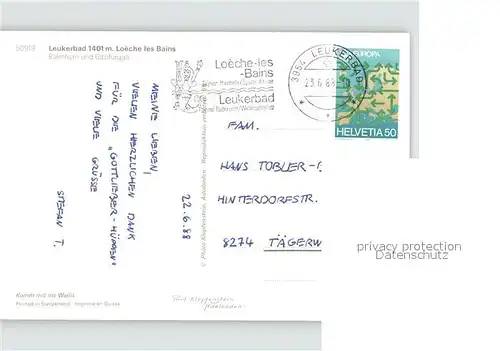 50919
Leukerbad 1401 m. Loèche les Bains
Balmhorn und
Loèche-les
-Bains
Leukerbad
3954 LEUKERBAD
23.6.88
EUROPA
HELVETIA 50
MEINE LIEBEN,
VIELEN HERZLICHEN DANK
FÜR DIE „GOTTLIEBER-HÜPPEN"
UND VIELE GRÜSSE
STEFAN T.
22.6.88
© Photo Klopfenstein, Adelboden
FAM.
HANS TOBLER-
HINTERDORFSTR.
8274 TÄGERW
Komm mit ins Wallis
Printed in Switzerland Imprimé en Suisse
Foto Klopfenstein
Adelboden
privacy protection
Datenschutz